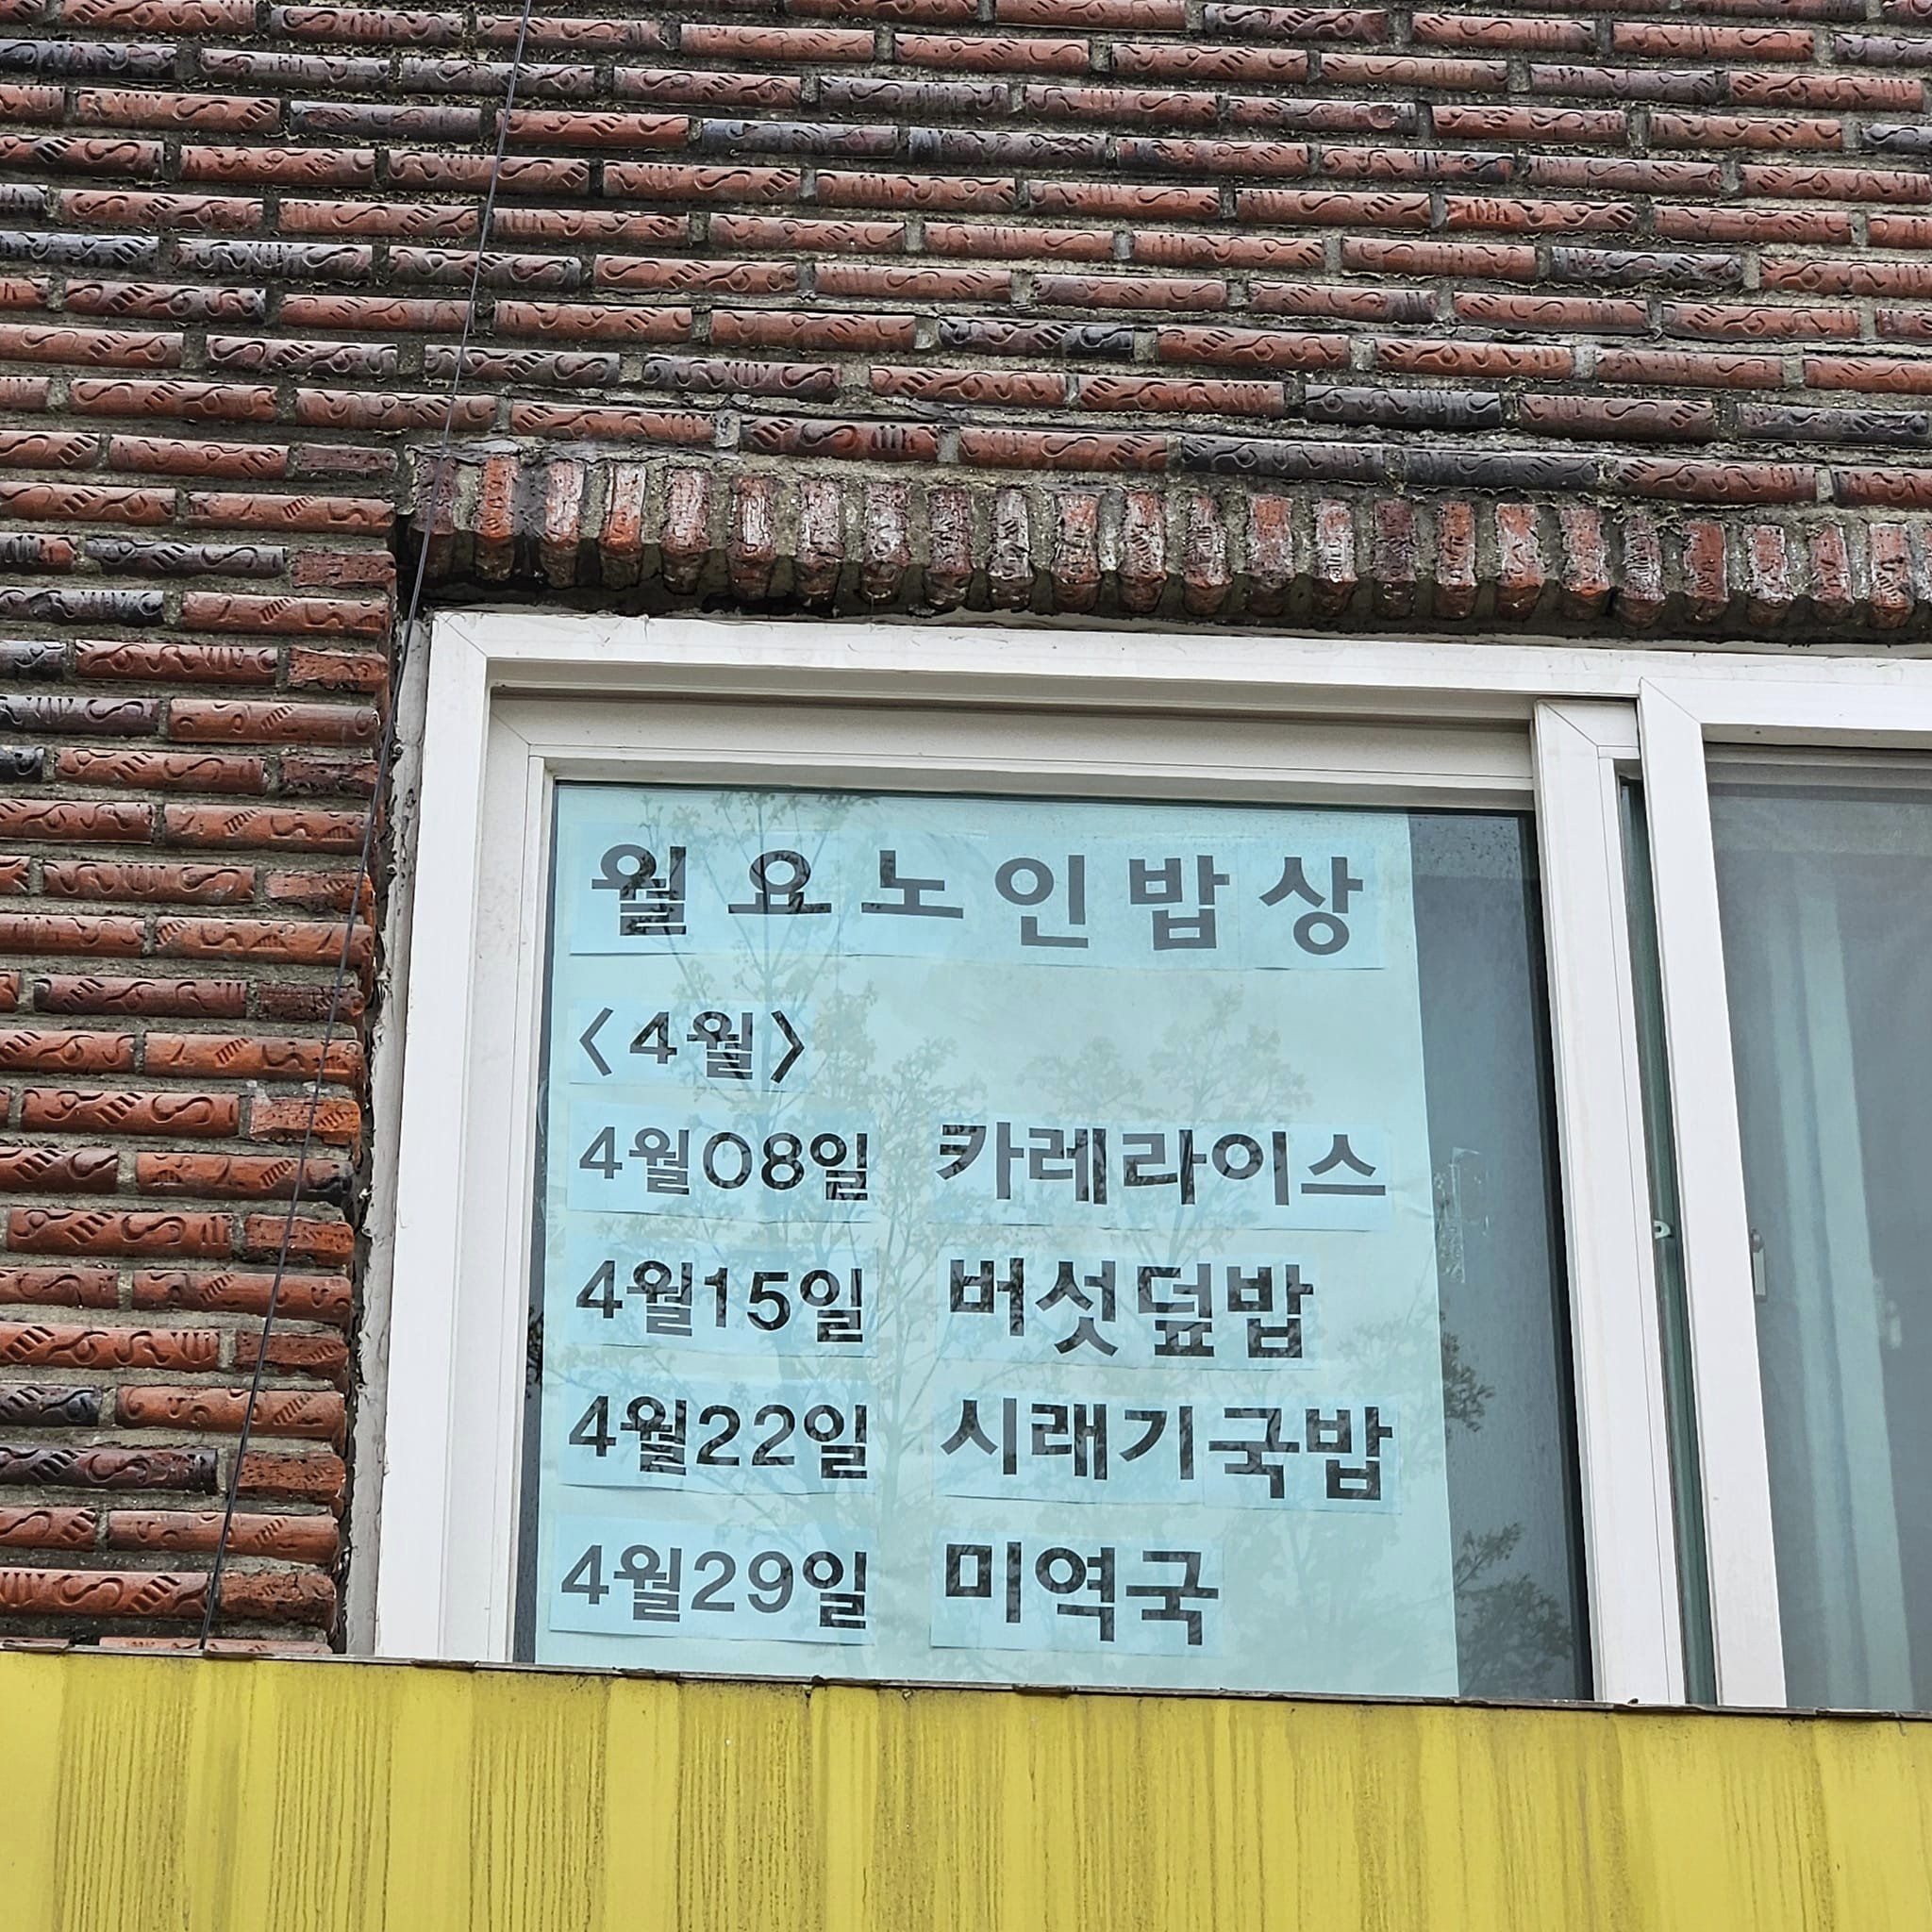 월요노인밥상
<4월>
4월08일 카레라이스
4월15일 버섯덮밥
4월22일 시래기국밥
4월29일 미역국